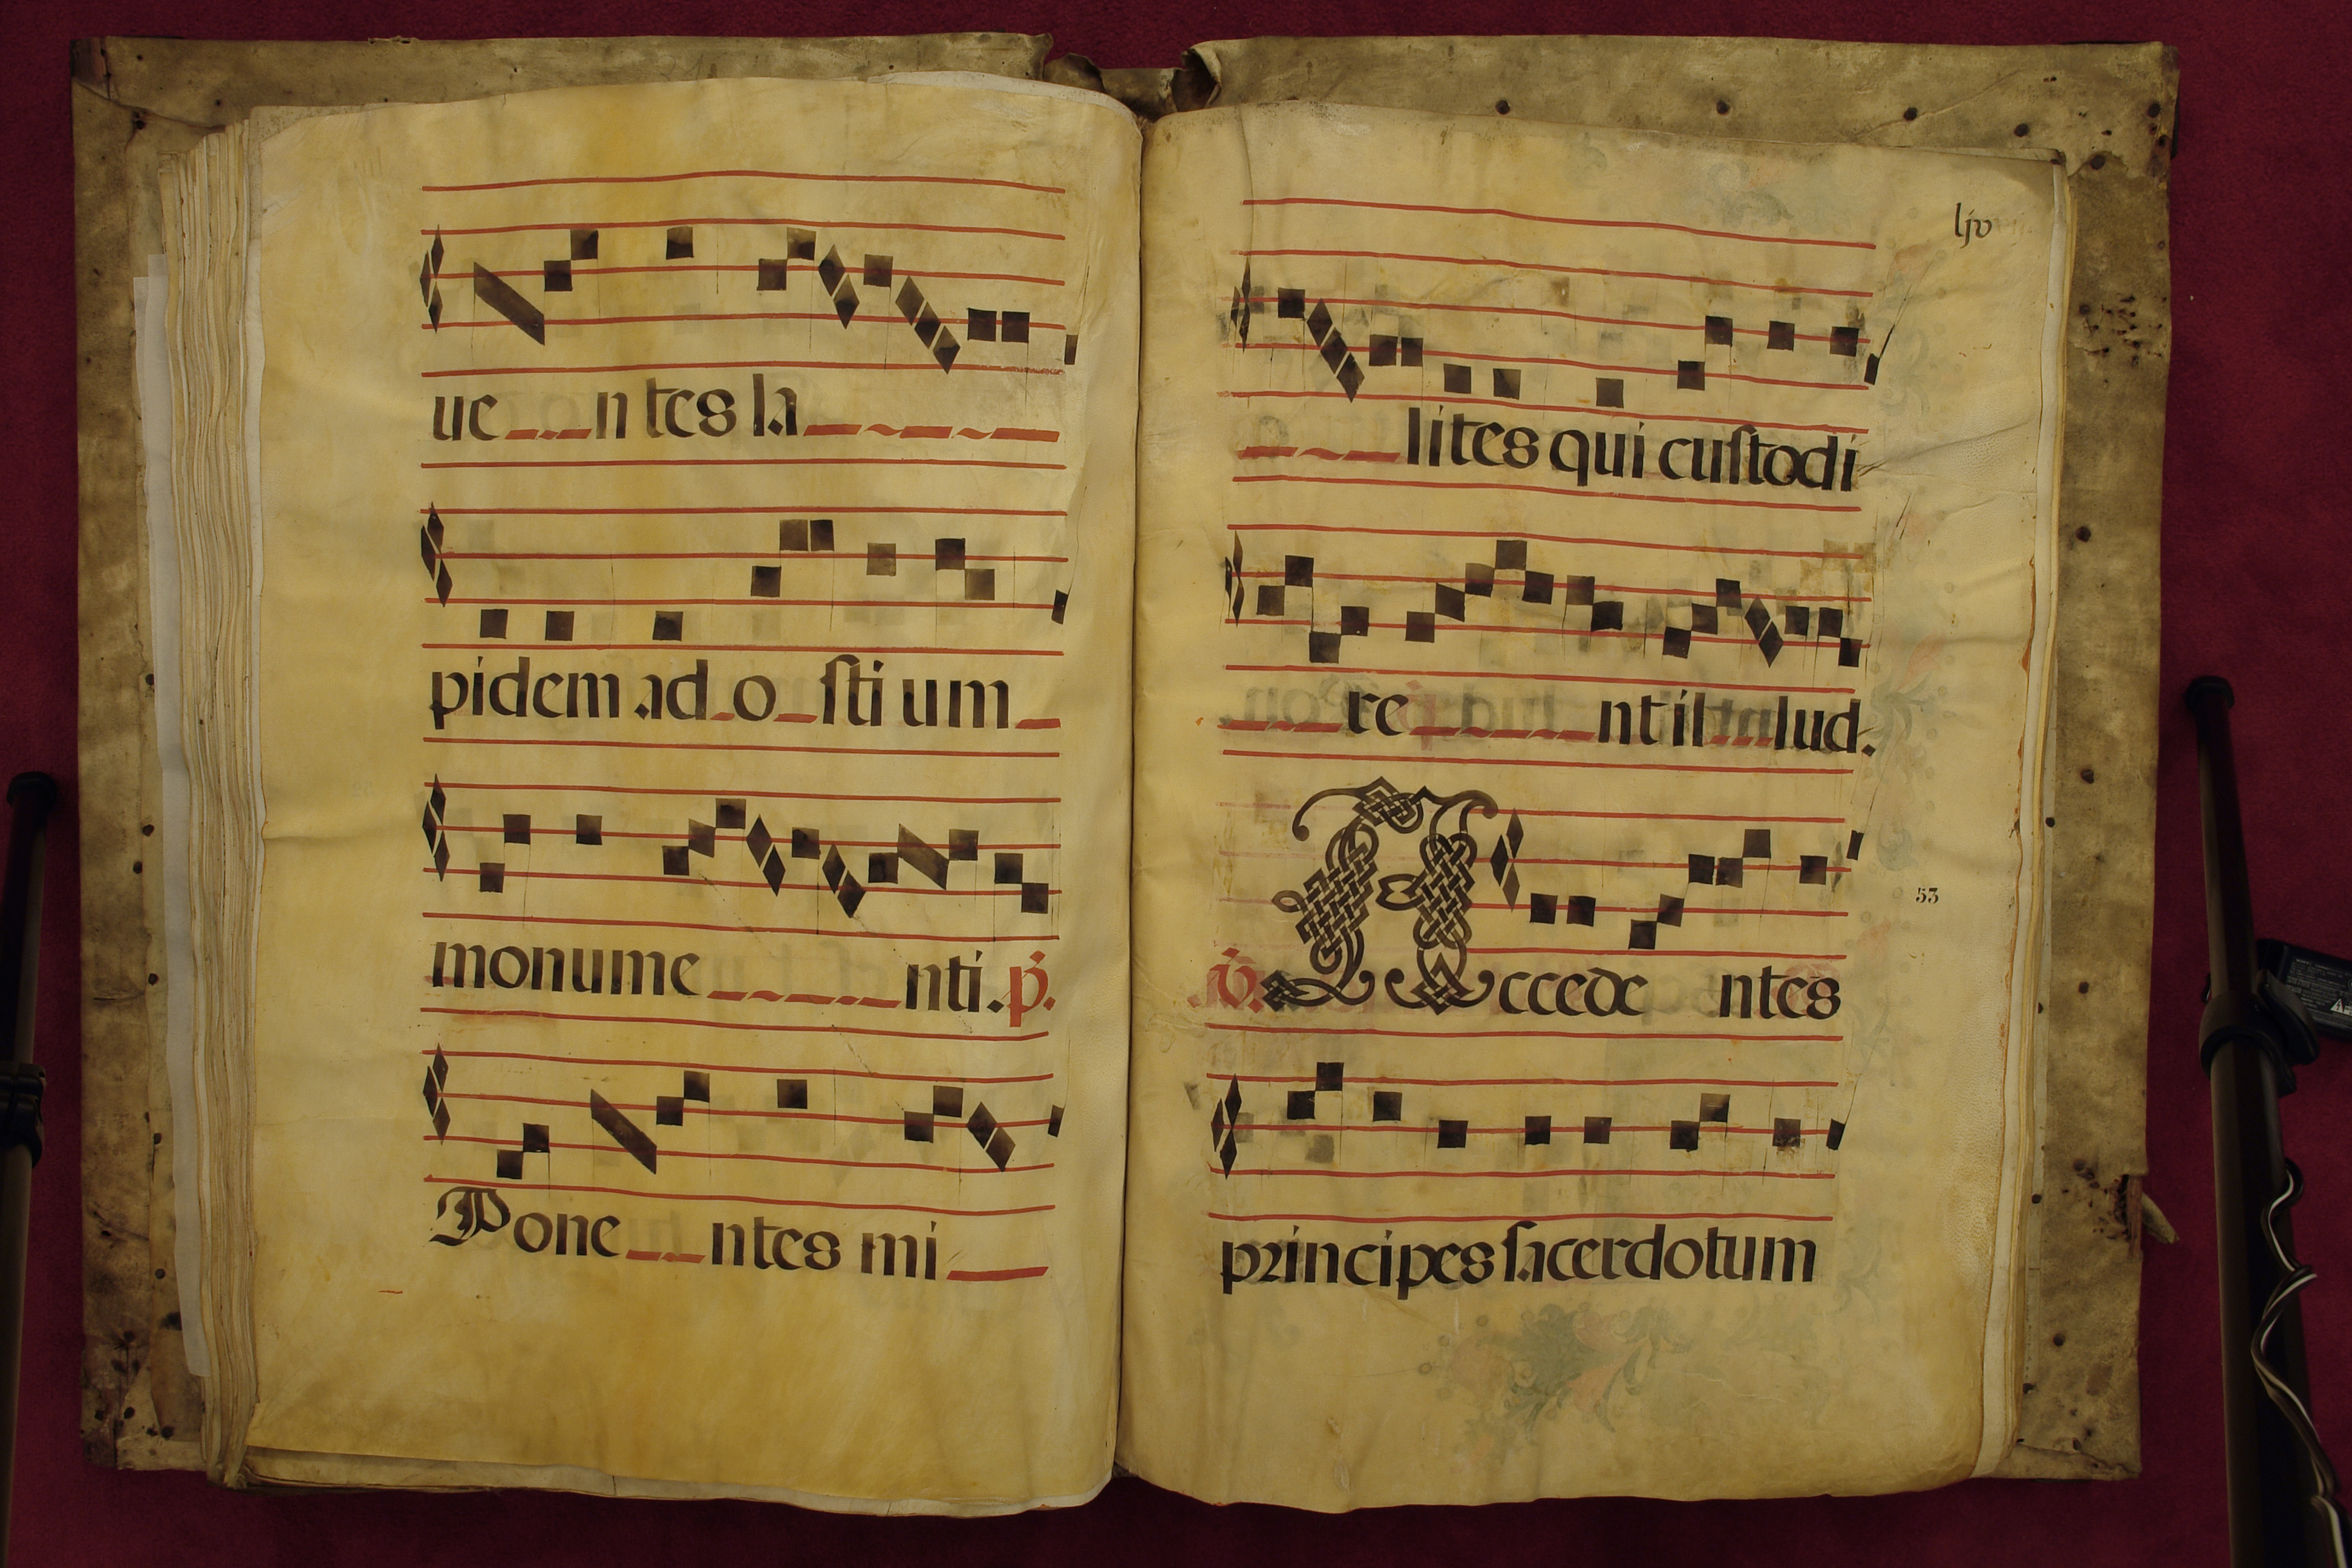 ue n tes la
pidem ad o sti um
monume nti. p.
Pone ntes mi
ljv
lites qui custodi
re nt il lud.
53
℣. Accede ntes
principes sacerdotum